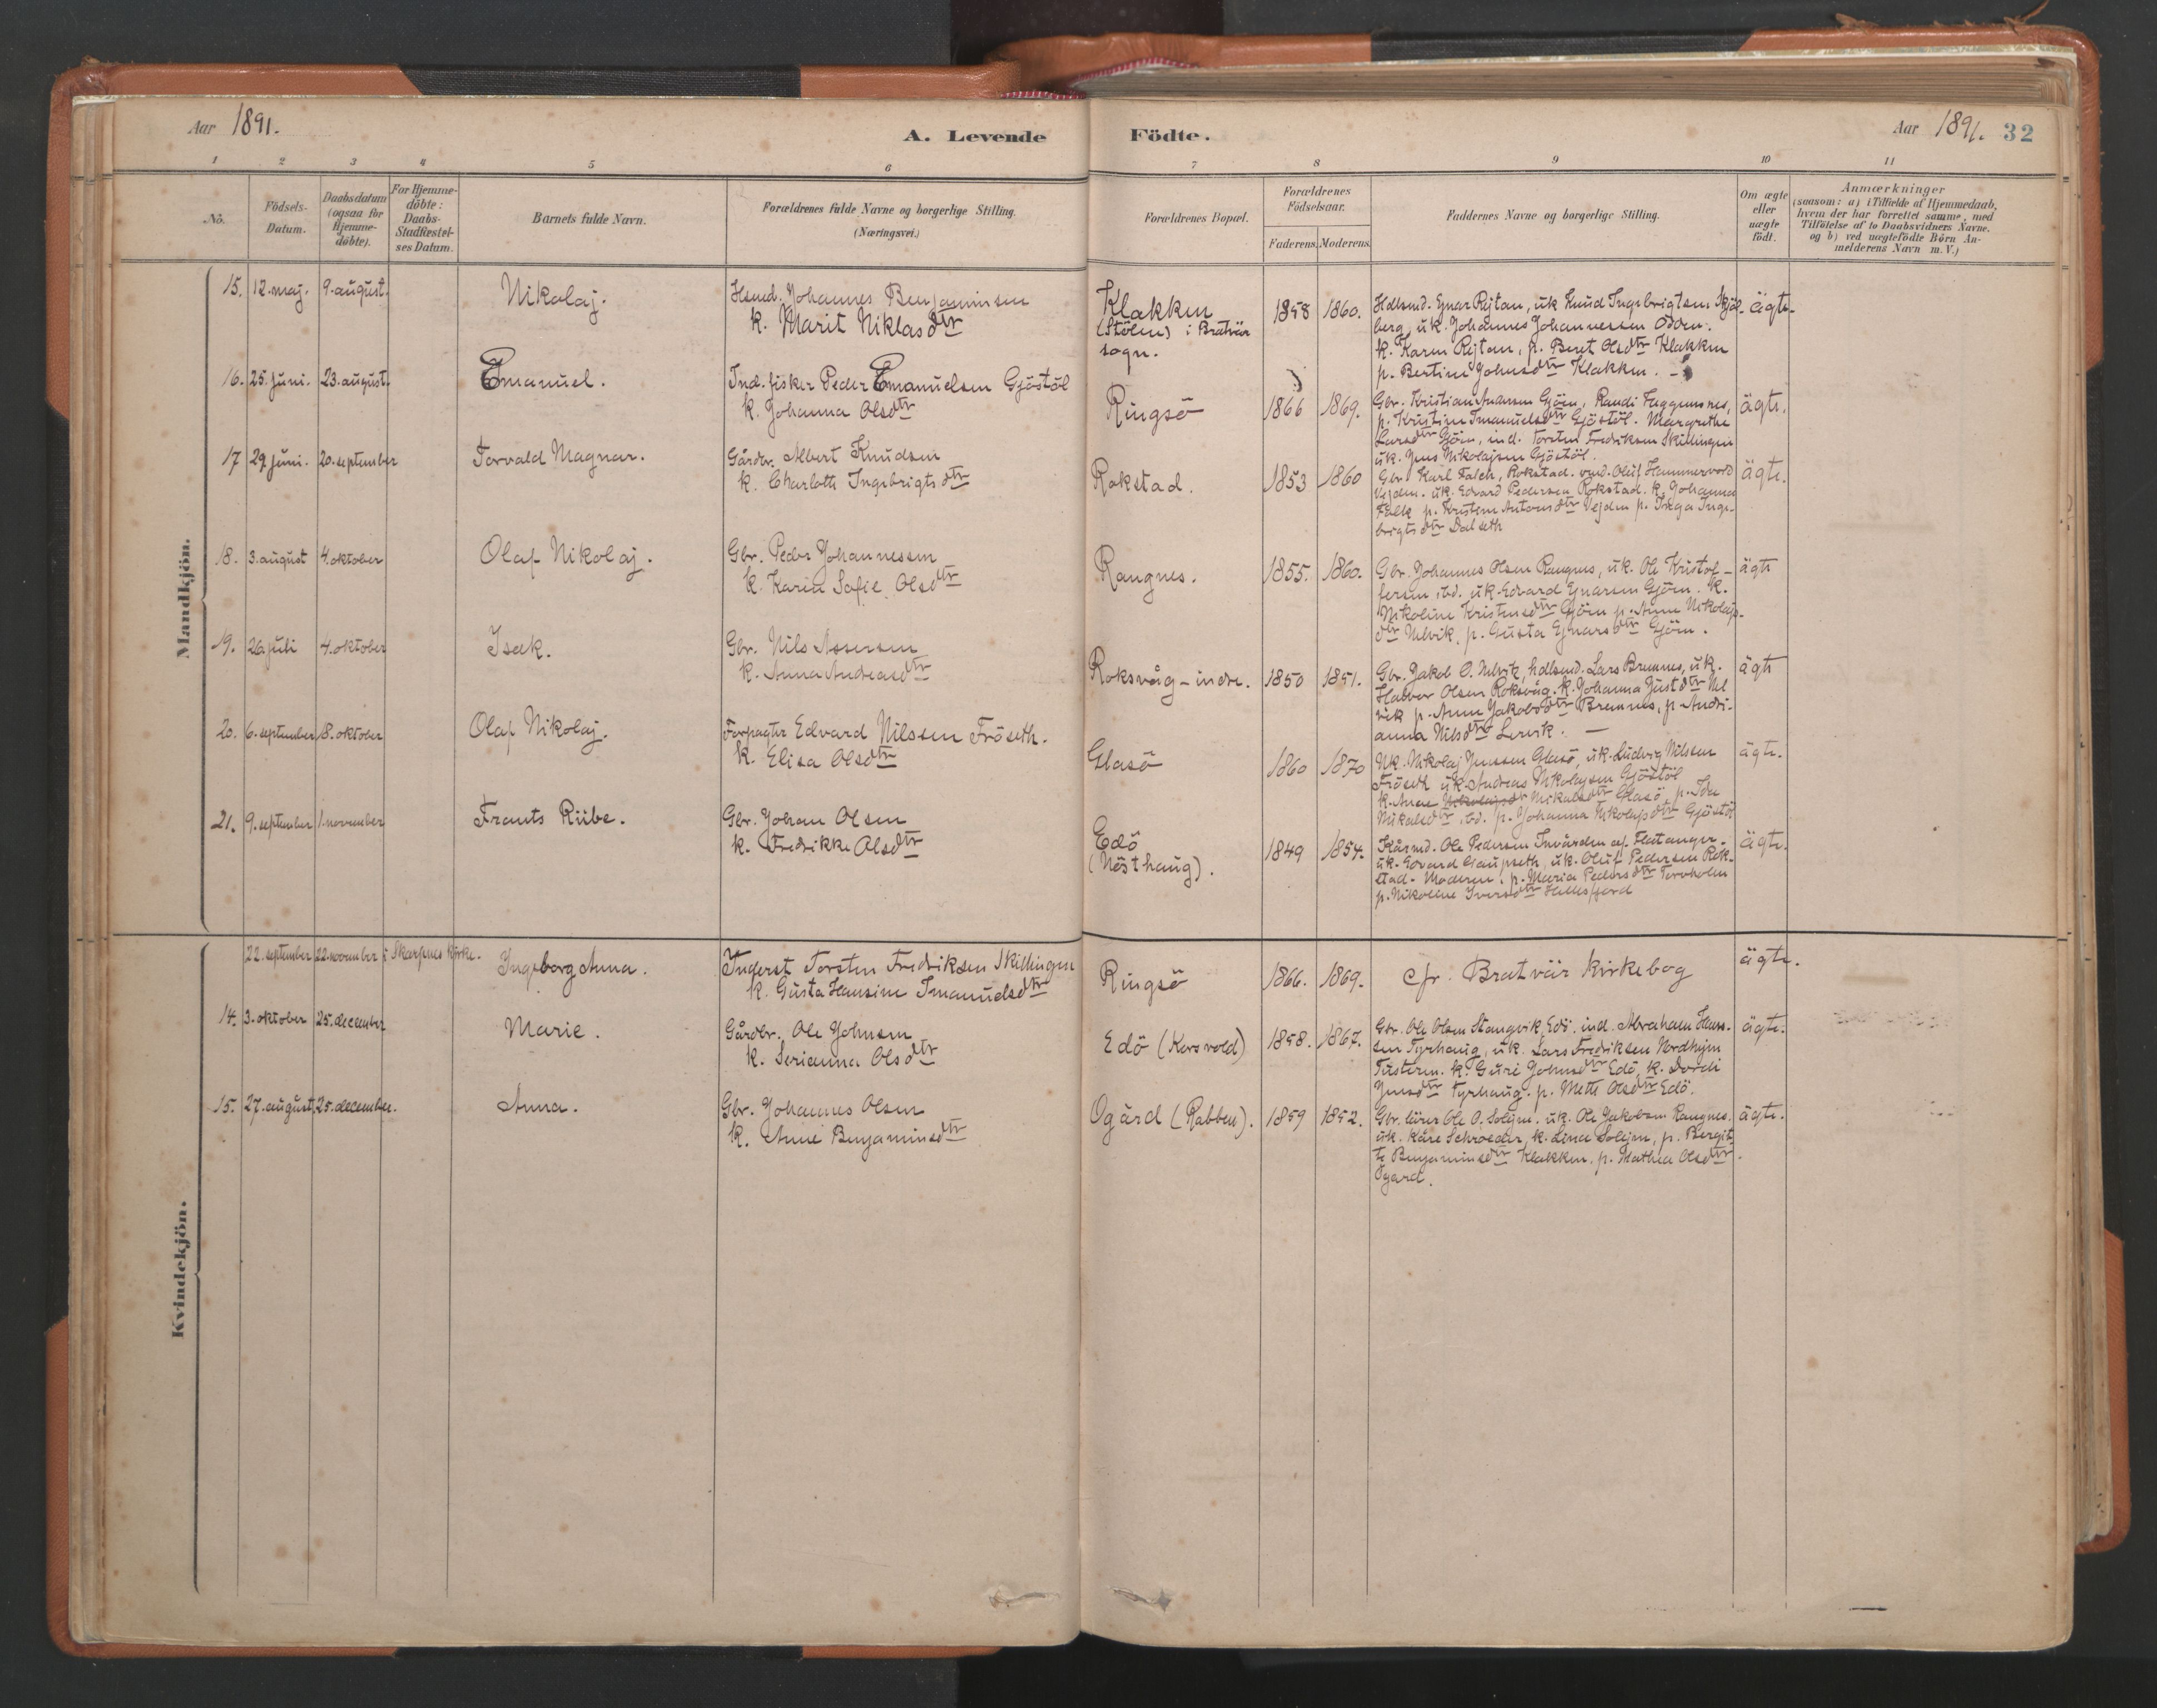 Aar 1891.
A. Levende Födte.
Aar 1891. 32
1 2 3 4 5 6 7 8 9 10 11
Nö.
Födsels-Datum.
Daabsdatum (ogsaa for Hjemme-döbte).
For Hjemme-döbte: Daabs-Stadfæstel-ses Datum.
Barnets fulde Navn.
Forældrenes fulde Navne og borgerlige Stilling. (Næringsvei.)
Forældrenes Bopæl.
Forældrenes Födselsaar.
Faderens. Moderens.
Faddernes Navne og borgerlige Stilling.
Om ægte eller uægte födt.
Anmærkninger
(saasom: a) i Tilfælde af Hjemmedaab,
hvem der har forrettet samme, med
Tilföielse af to Daabsvidners Navne.
og b) ved uægtefödte Börn An-
melderens Navn m. V.)
Mandkjön.
15. 12. maj. 9. august. Nikolaj.
Hsmd. Johannes Benjaminsen
k. Marit Niklasdtr
Klakken
(Stölen) i Bratvär
sogn.
1858 1860.
Hdlsmd. Ejnar Rejtan, uk Knud Ingebrigtsen Skjöl-
berg, uk. Johannes Johannessen Odden.
k. Karen Rejtan, p. Beret Olsdtr Klakken
p. Bertine Johnsdtr Klakken. -
ägte
16. 25. juni. 23. august. Emanuel.
Ind. fisker Peder Emanuelsen Gjöstöl
k. Johanna Olsdtr
Ringsö
1866 1869.
Gbr. Kristian Gjörn, Randi
p. Kristine Imanuelsdtr Gjöstöl. Margrethe
Larsdtr Gjörn, ind. Torsten Fredriksen Skillingen
uk. Jens Nikolajsen Gjöstöl.
ägte.
17 29. juni. 20. september Torvald Magnar.
Gårdbr. Albert Knudsen
k. Charlotte Ingebrigtsdtr
Rokstad.
1853 1860
Gbr Karl Falch, Rokstad. Oluf Hammervold
Vejden. uk. Edvard Pedersen Rokstad. k. Johanna
Falk p. Kristine Antonsdtr Vejden p. Inga Inge-
brigtsdtr Dalseth
ägte.
18. 3. august 4. oktober Olaf Nikolaj.
Gbr. Peder Johannessen
k. Karia Sofie Olsdtr
Rangnes.
1855. 1860.
Gbr. Johannes Olsen Rangnes, uk. Ole Kristof-
fersen ibd. uk. Edvard Ejnarsen Gjörn. k.
Nikoline Kristensdtr Gjörn p. Anne Nikolajs-
dtr Ulvik, p. Gusta Ejnarsdtr Gjörn.
ägte
19. 26. juli 4. oktober Isak.
Gbr. Nils Assersen
k. Anna Andreasdtr
Roksvåg - indre.
1850 1851.
Gbr. Jakob O. Ulvik, hdlsmd. Lars Bremnes, uk.
Halvor Olsen Roksvåg. k. Johanna Justdtr Ul
vik p. Anne Jakobsdtr Bremnes, p. Andri-
anna Nilsdtr Lervik. -
ägte
20. 6. september 18. oktober Olaf Nikolaj.
Forpagter Edvard Nilssen Fröseth.
k. Elisa Olsdtr
Glasö
1860 1870
Uk. Nikolaj Jenssen Glasö, uk. Ludvig Nilssen
Fröseth uk. Andreas Nikolajsen Gjöstöl
k. Anne Nikolajsdtr Mikalsdtr Glasö p. Ida
Mikalsdtr ibd. p. Johanna Nikolajsdtr Gjöstöl
ägte.
21. 9. september 1. november Frants Riibe.
Gbr. Johan Olsen
k. Fredrikke Olsdtr
Edö
(Nösthaug).
1849 1854.
Kårmd. Ole Pedersen Invården af Flatanger.
uk. Edvard Gaupseth, uk. Oluf Pedersen Rok-
stad. Moderen. p. Maria Pedersdtr Tornholm
p. Nikoline Iversdtr Hellesfjord
ägte.
Kvindekjön.
22. september 22. november i Skarpnes kirke. Ingeborg Anna.
Inderst Torsten Fredriksen Skillingen
k. Gusta Hansine Imanuelsdtr
Ringsö
1866. 1869.
cfr. Bratvär kirkebog
ägte.
14. 3. oktober 25. december Marie.
Gårdbr. Ole Johnsen
k. Serianna Olsdtr
Edö (Korsvold)
1858. 1867.
Gbr. Ole Olsen Stangvik, Edö. ind. Abraham Hans-
sen Tyrhaug, uk. Lars Fredriksen Nordhejm
Tustern. k. Guri Johnsdtr Edö, k. Dordi
Jensdtr Tyrhaug. p. Mette Olsdtr Edö.
ägte.
15. 27. august. 25. december. Anna.
Gbr. Johannes Olsen
k. Anne Benjaminsdtr
Ogård (Rabben).
1859 1852.
Gbr. lärer Ole O. Solejm. uk. Ole Jakobsen Rangnes.
uk. Kåre Schroeder, k. Lina Solejm, p. Bergit-
te Benjaminsdtr Klakken. p. Mathea Olsdtr
Ogard.
ägte.